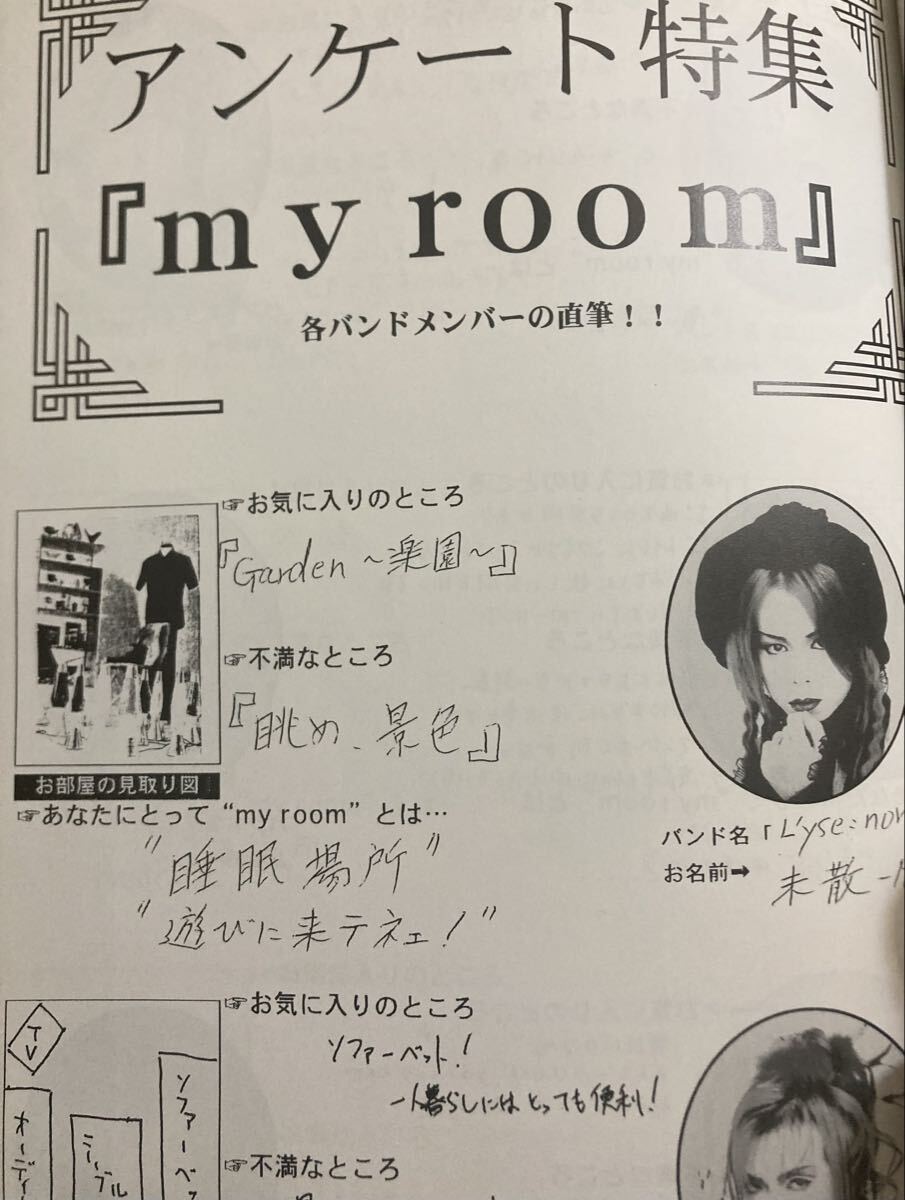 アンケート特集
『my room』
各バンドメンバーの直筆！！
☞お気に入りのところ
『Garden ～楽園～』
☞不満なところ
『眺め、景色』
お部屋の見取り図
☞あなたにとって“my room”とは…
"睡眠場所"
"遊びに来テネェ！"
バンド名「L'yse:non
お名前➡
未散
☞お気に入りのところ
ソファーベット！
一人暮らしにはとっても便利！
☞不満なところ
TV
オーディ
テーブル
ソファーベッ